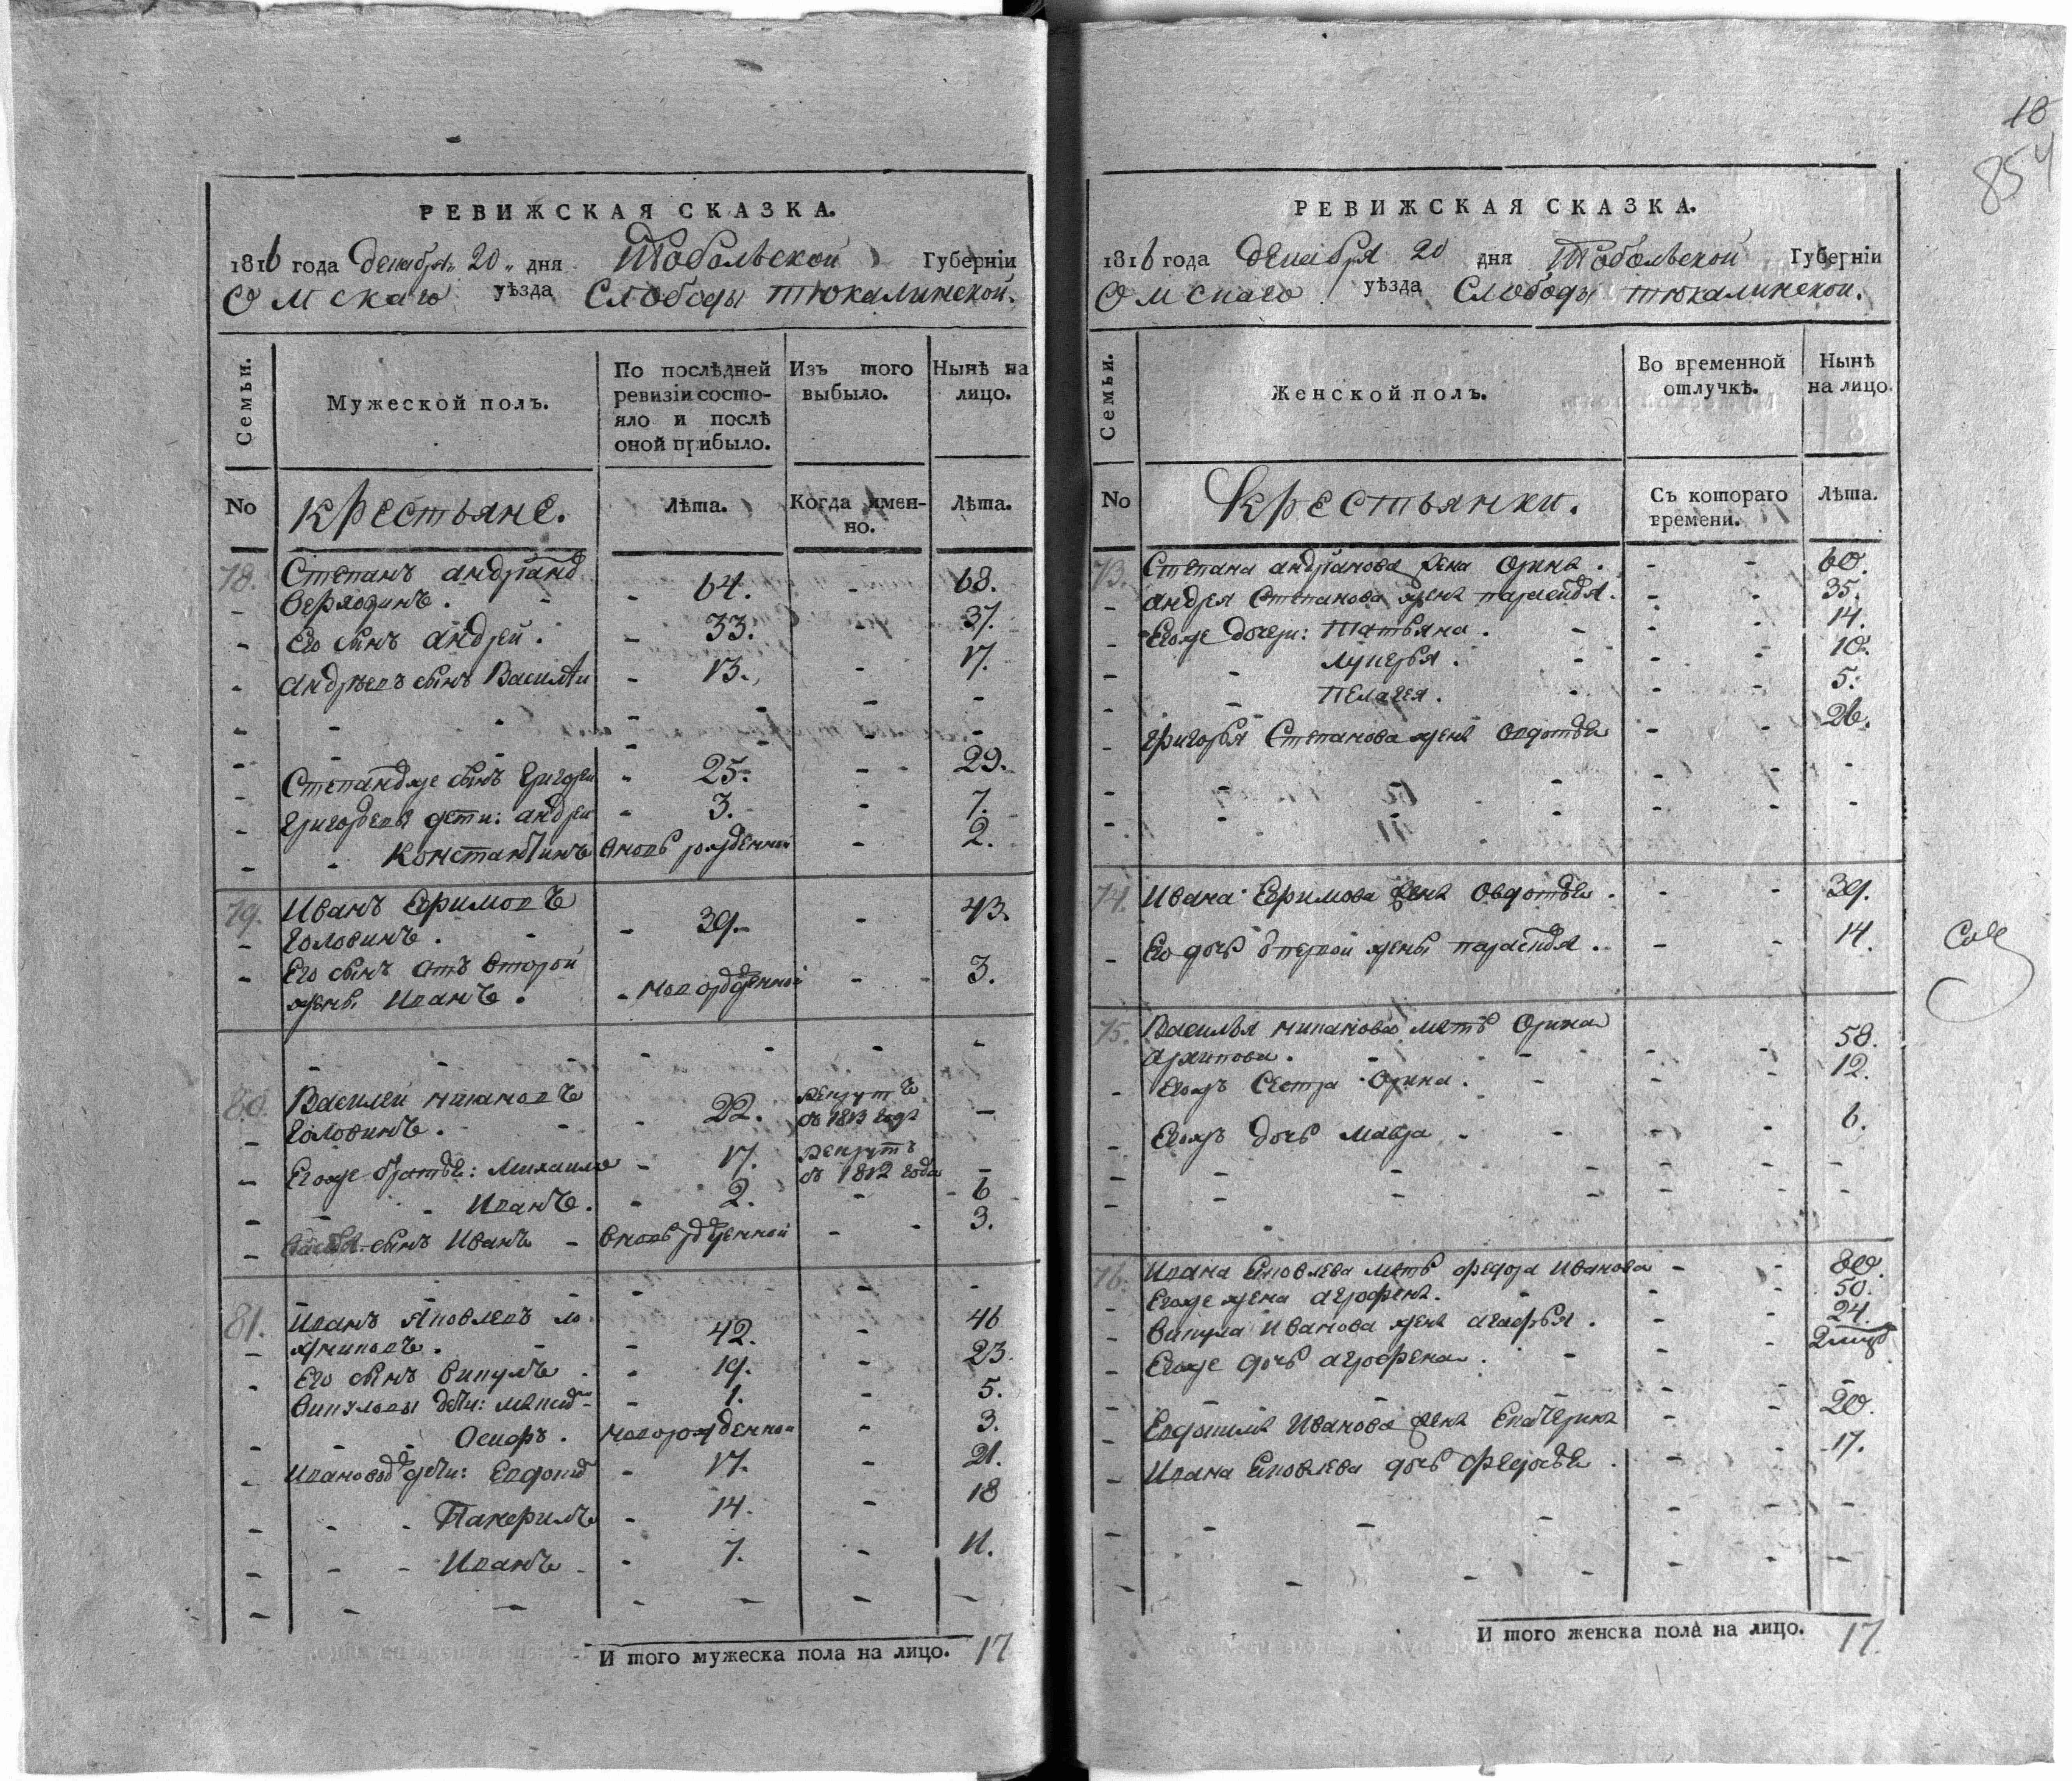 РЕВИЖСКАЯ СКАЗКА.
1816 года декабря 20 дня Тобольской Губернїи
Омскаго уѣзда Слободы Тюкалинской.
Семьи.
Мужеской полъ.
По послѣдней ревизїи состо-
яло и послѣ
оной прибыло.
Изъ того выбыло.
Нынѣ на лицо.
No
крестьяне.
Лѣта.
Когда имен-
но.
Лѣта.
78. Степанъ андрїановъ 64. 68.
Его сынъ андрей. 33. 37.
андрѣевъ сынъ Василѣи 13. 17.
Степановъ же сынъ григореи 25. 29.
григорьевы дети: андреи 3. 7.
Константинъ вновь рожденный 2.
79. Иванъ Ефимовъ
головинъ. 39. 43.
Его сынъ отъ второй
жены Иванъ. новорожденной 3.
80. Василеи
головинъ. 22. рекрутъ
въ 1813 годе
Его же братья: Михаило 17. рекрутъ
въ 1812 года
Иванъ. 2. 6
сынъ Иванъ вновь рожденной 3.
81. Иванъ Яковлевъ 42. 46
Его сынъ Викулъ 19. 23.
Викуловы дети: 1. 5.
Осифъ. новорожденной 3.
Ивановы дети: 17. 21.
14. 18
Иванъ 7. 11.
И того мужеска пола на лицо. 17
18
854
РЕВИЖСКАЯ СКАЗКА.
1816 года декабря 20 дня Тобольской Губернїи
Омскаго уѣзда Слободы тюкалинской.
Семьи.
Женской полъ.
Во временной отлучкѣ.
Нынѣ на лицо.
No
крестьянки.
Съ котораго времени.
Лѣта.
73. Степана андрїанова жена Орина. 60.
андрея Степанова жена парасковья. 35.
Его же дочери: Татьяна. 14.
Лукерья. 10.
Пелагея. 5.
григорья Степанова жена овдотья 26.
74. Ивана Ефимова жена Овдотья. 39.
Его дочь от первой жены парасковья. 14.
75. Василья мать Орина
архипова. 58.
Егожъ Сестра Орина. 12.
Егожъ дочь мавра 6.
76. Ивана Яковлева мать федора Иванова 80.
Его же жена агрофена. 50.
Викула Иванова жена агафья. 24.
Его же дочь агрофена.
Иванова жена Екатерина 20.
Ивана Яковлева дочь федосья 17.
И того женска пола на лицо. 17.